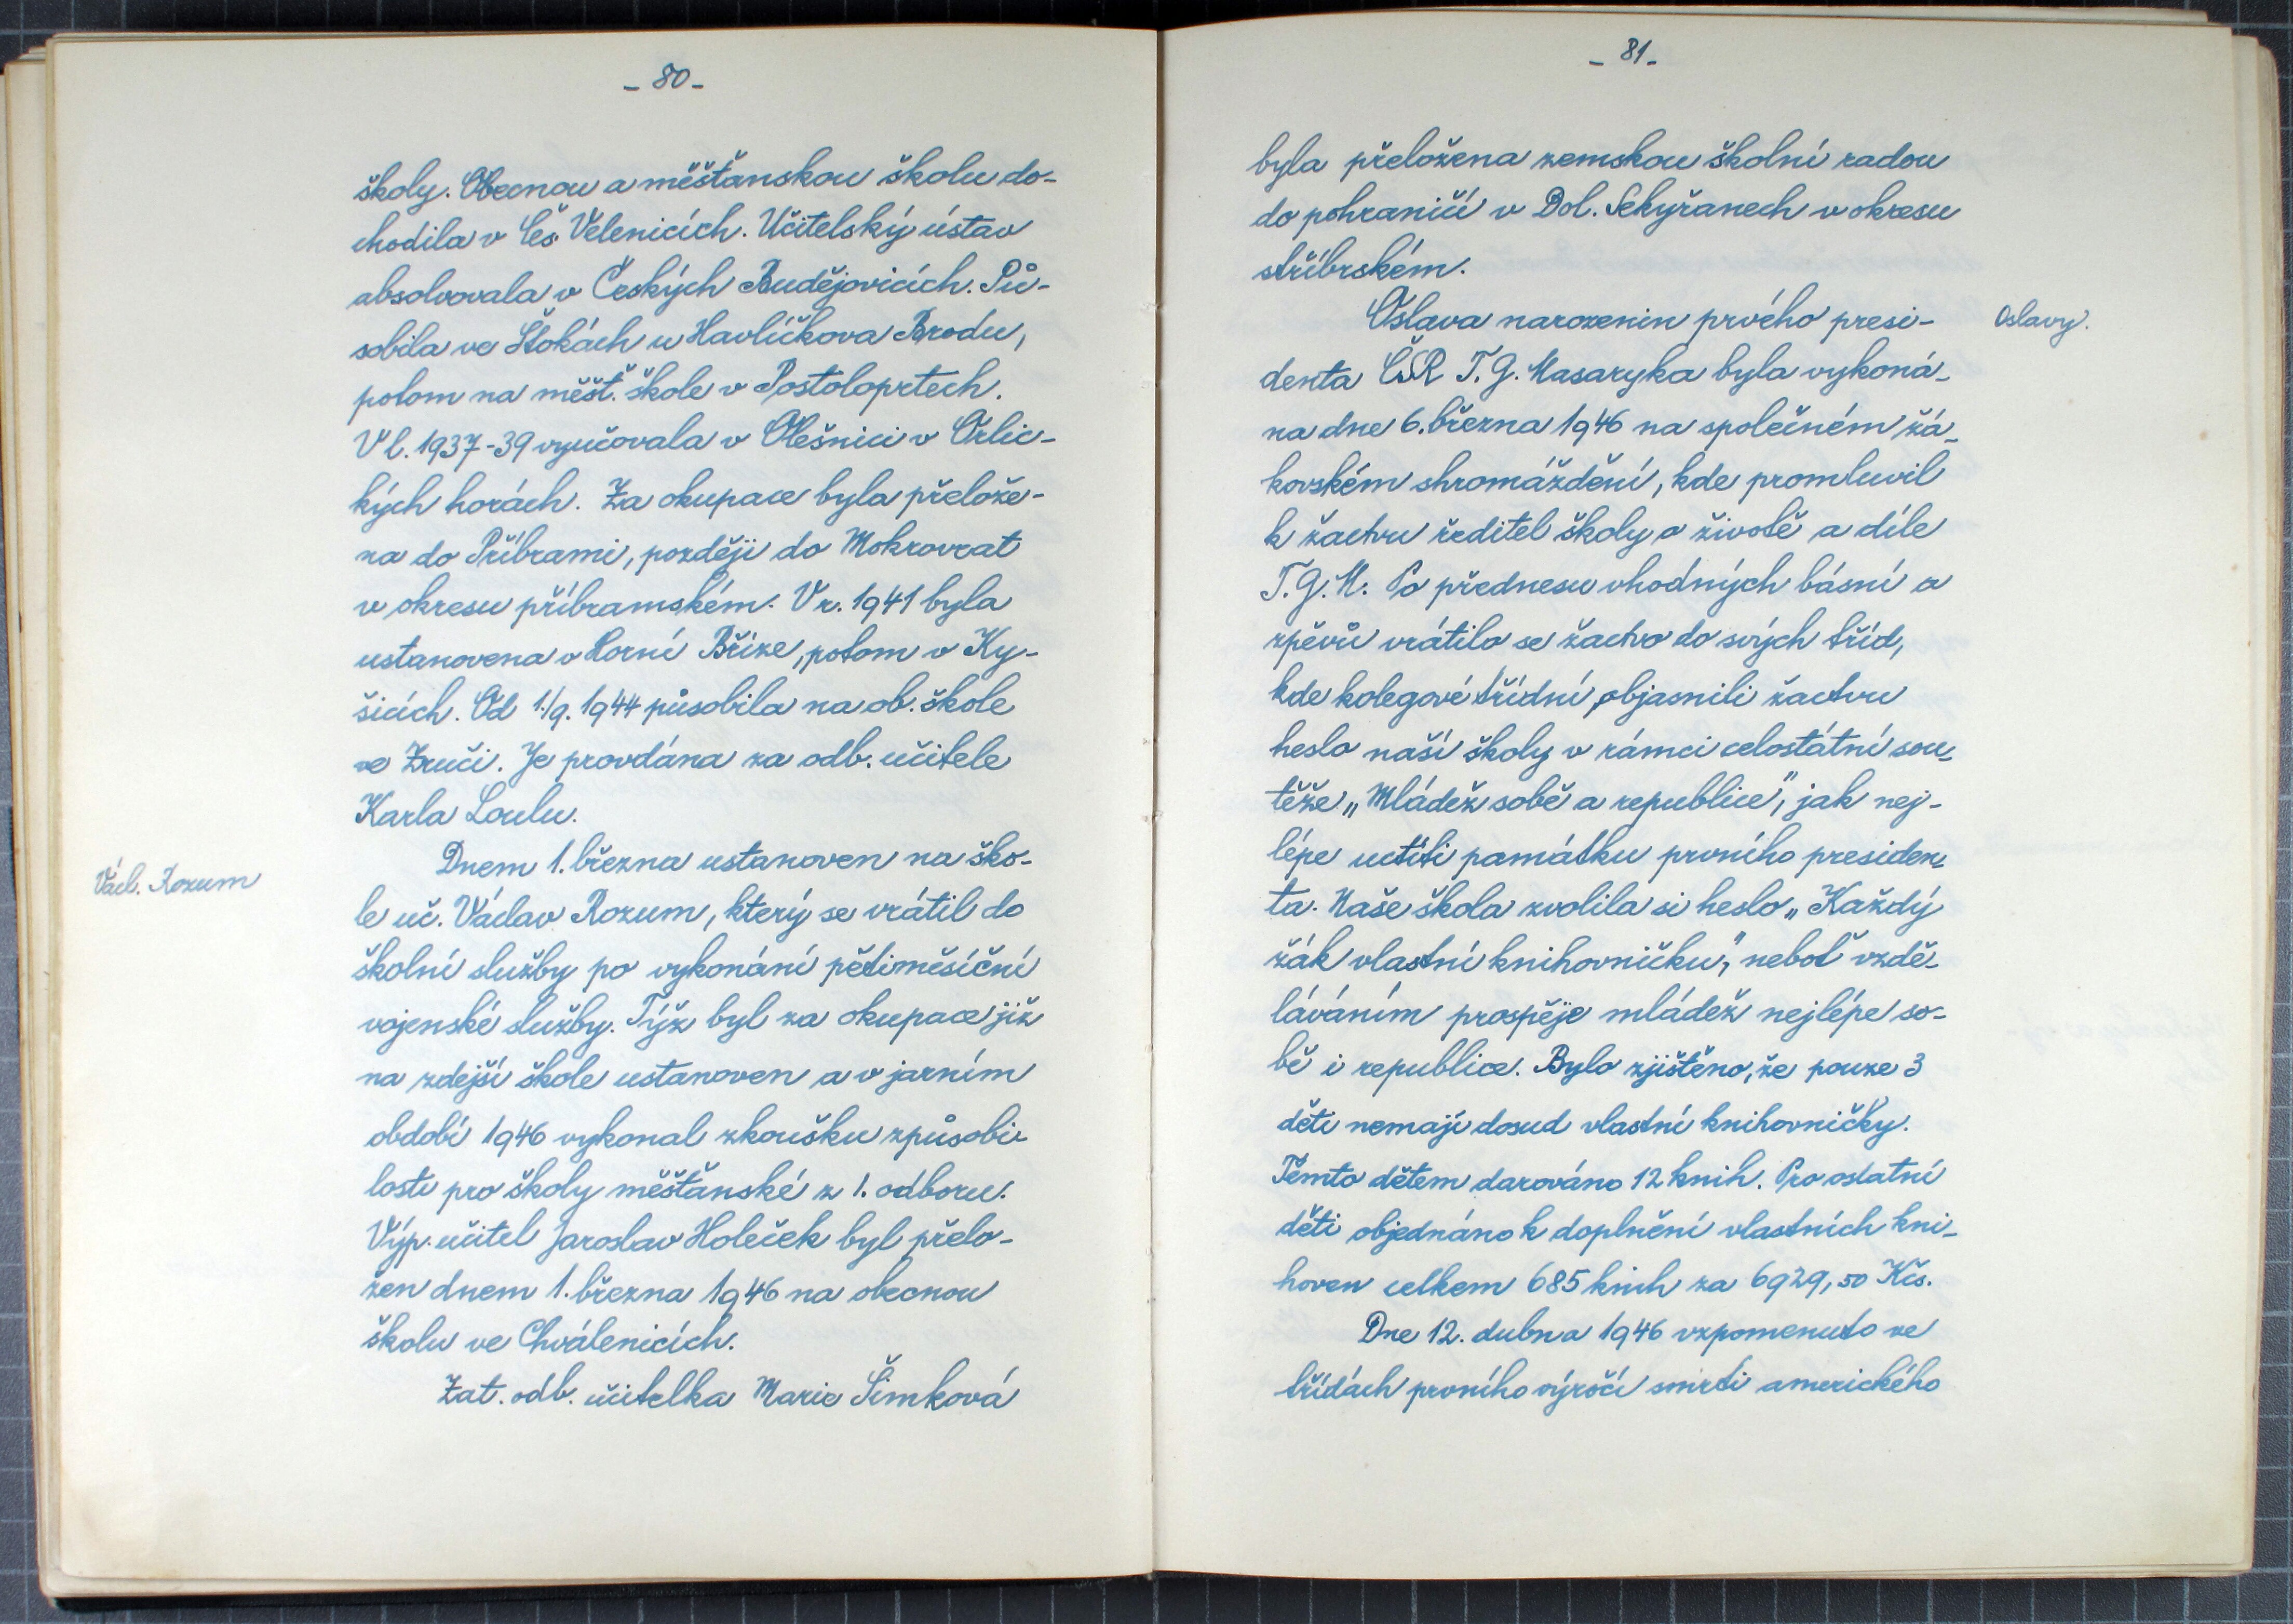 - 80 -
školy. Obecnou a měšťanskou školu do-
chodila v Čes. Velenicích. Učitelský ústav
absolvovala v Českých Budějovicích. Pů-
sobila ve Štokách u Havlíčkova Brodu,
potom na měšť. škole v Postoloprtech.
V l. 1937-39 vyučovala v Olešnici v Orlic-
kých horách. Za okupace byla přelože-
na do Příbrami, později do Mokrovrat
v okresu příbramském. V r. 1941 byla
ustanovena v Horní Bříze, potom v Ky-
šicích. Od 1./9. 1944 působila na ob. škole
ve Zruči. Je provdána za odb. učitele
Karla Loulu.
Václ. Rozum
Dnem 1. března ustanoven na ško-
le uč. Václav Rozum, který se vrátil do
školní služby po vykonání pětiměsíční
vojenské služby. Týž byl za okupace již
na zdejší škole ustanoven a v jarním
období 1946 vykonal zkoušku způsobi-
losti pro školy měšťanské z 1. odboru.
Výp. učitel Jaroslav Holeček byl přelo-
žen dnem 1. března 1946 na obecnou
školu ve Chválenicích.
Zat. odb. učitelka Marie Šimková
- 81 -
byla přeložena zemskou školní radou
do pohraničí v Dol. Sekyřanech v okresu
stříbrském.
Oslavy.
Oslava narozenin prvého presi-
denta ČSR T. G. Masaryka byla vykoná-
na dne 6. března 1946 na společném žá-
kovském shromáždění, kde promluvil
k žactvu ředitel školy o životě a díle
T. G. M. Po přednesu vhodných básní a
zpěvů vrátilo se žactvo do svých tříd,
kde kolegové třídní objasnili žactvu
heslo naší školy v rámci celostátní sou-
těže „Mládež sobě a republice", jak nej-
lépe uctíti památku prvního presiden-
ta. Naše škola zvolila si heslo „Každý
žák vlastní knihovničku", neboť vzdě-
láváním prospěje mládež nejlépe so-
bě i republice. Bylo zjištěno, že pouze 3
děti nemají dosud vlastní knihovničky.
Těmto dětem darováno 12 knih. Pro ostatní
děti objednáno k doplnění vlastních kni-
hoven celkem 685 knih za 6929,50 Kčs.
Dne 12. dubna 1946 vzpomenuto ve
třídách prvního výročí smrti amerického